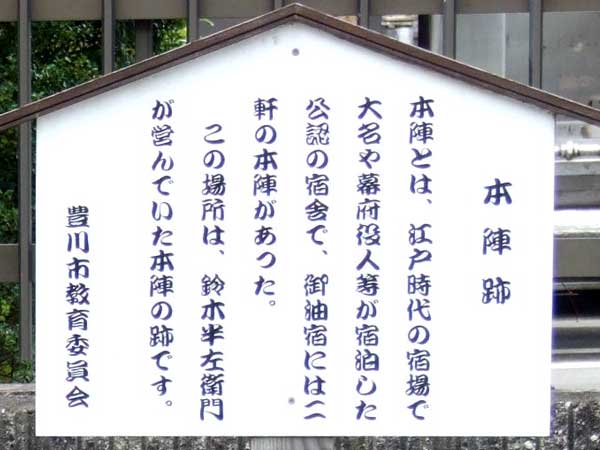 本陣跡
本陣とは、江戸時代の宿場で
大名や幕府役人等が宿泊した
公認の宿舎で、御油宿には二
軒の本陣があった。
この場所は、鈴木半左衛門
が営んでいた本陣の跡です。
豊川市教育委員会